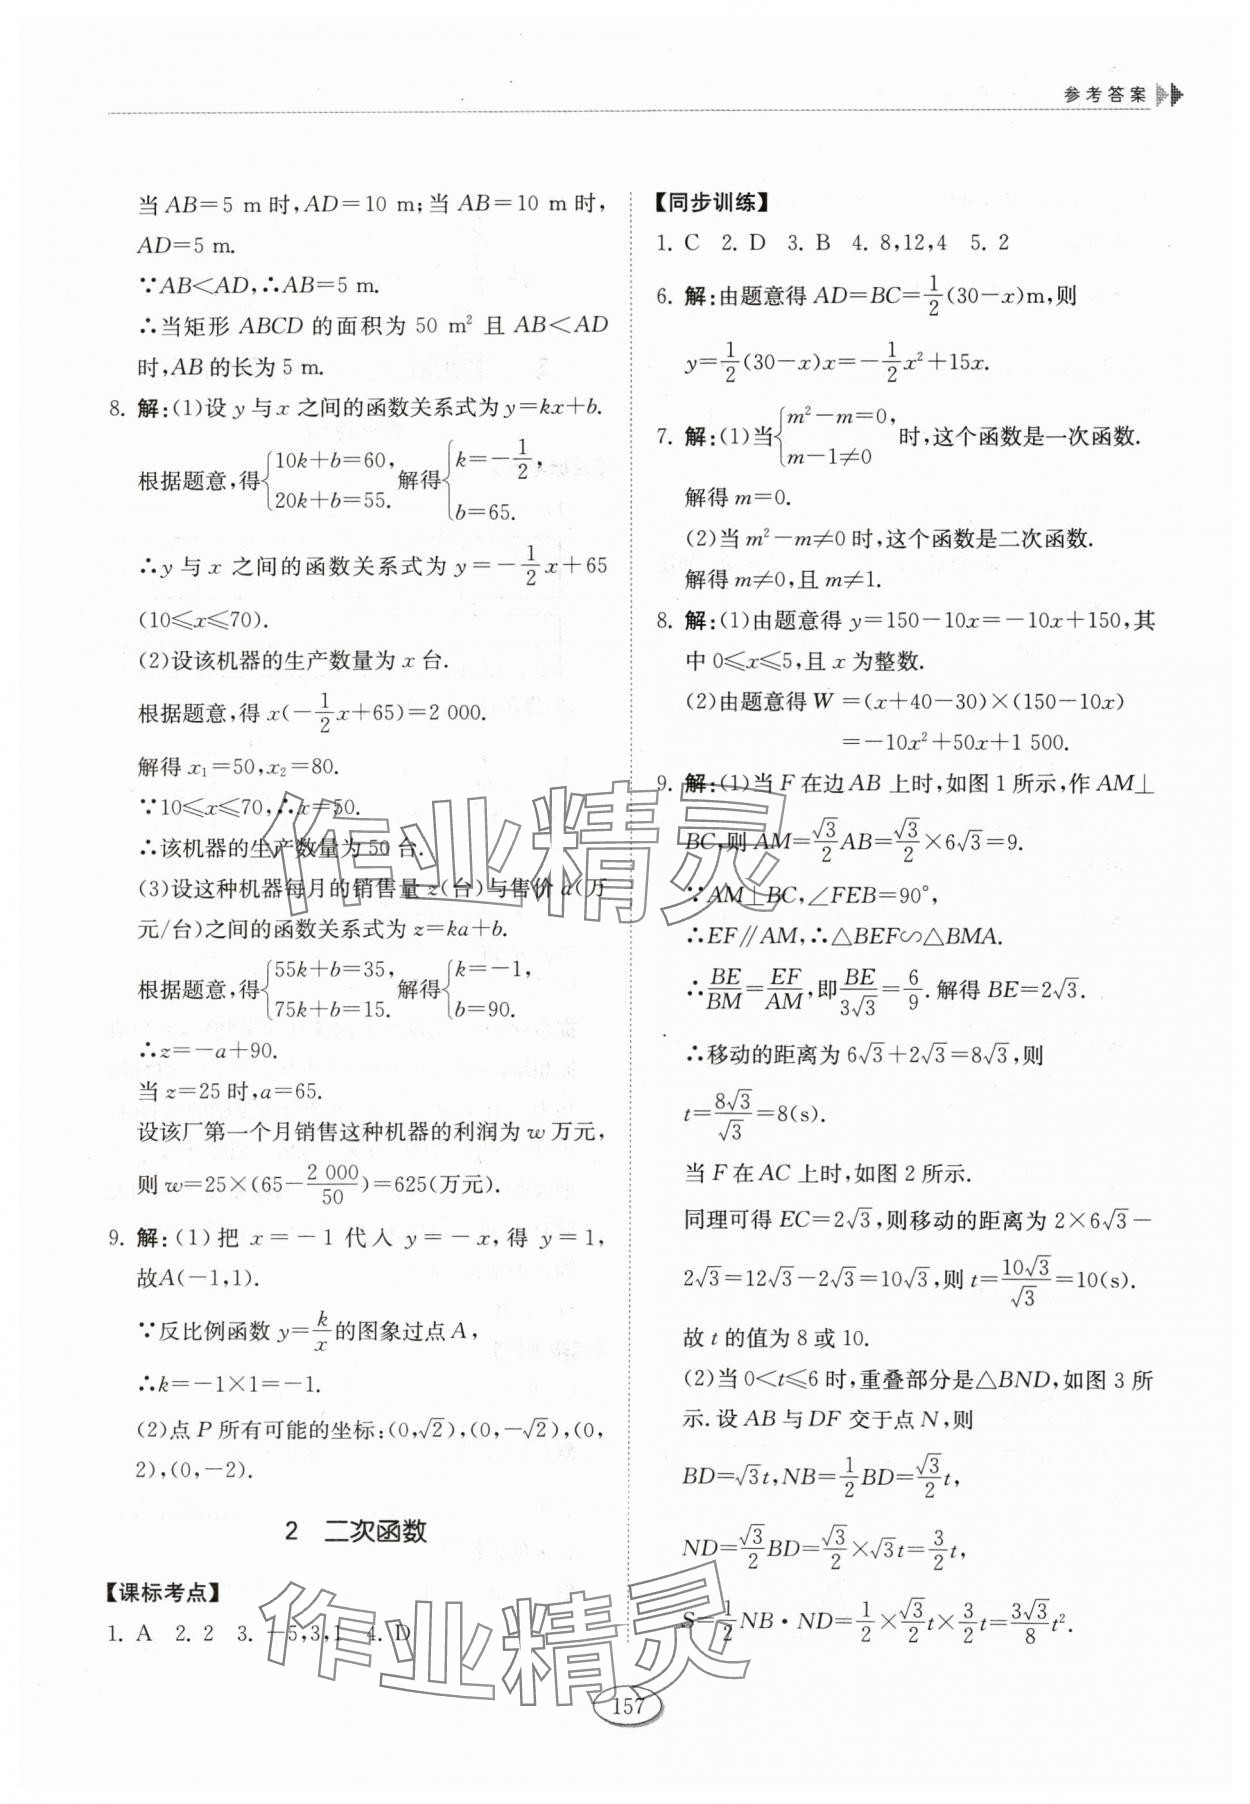 参考答案
当 AB=5 m 时,AD=10 m;当 AB=10 m 时,
AD=5 m.
∵AB<AD,∴AB=5 m.
∴当矩形 ABCD 的面积为 50 m² 且 AB<AD
时,AB 的长为 5 m.
8. 解:(1)设 y 与 x 之间的函数关系式为 y=kx+b.
根据题意,得{10k+b=60, 20k+b=55. 解得{k=-1/2, b=65.
∴y 与 x 之间的函数关系式为 y=-1/2x+65
(10≤x≤70).
(2)设该机器的生产数量为 x 台.
根据题意,得 x(-1/2x+65)=2 000.
解得 x₁=50,x₂=80.
∵10≤x≤70,∴x=50.
∴该机器的生产数量为 50 台.
(3)设这种机器每月的销售量 z(台)与售价 a(万
元/台)之间的函数关系式为 z=ka+b.
根据题意,得{55k+b=35, 75k+b=15. 解得{k=-1, b=90.
∴z=-a+90.
当 z=25 时,a=65.
设该厂第一个月销售这种机器的利润为 w 万元,
则 w=25×(65-2 000/50)=625(万元).
9. 解:(1)把 x=-1 代入 y=-x,得 y=1,
故A(-1,1).
∵反比例函数 y=k/x的图象过点 A,
∴k=-1×1=-1.
(2)点 P 所有可能的坐标:(0,√2),(0,-√2),(0,
2),(0,-2).
2 二次函数
【课标考点】
1. A 2. 2 3. -5,3,1 4. D
【同步训练】
1. C 2. D 3. B 4. 8,12,4 5. 2
6. 解:由题意得 AD=BC=1/2(30-x)m,则
y=1/2(30-x)x=-1/2x²+15x.
7. 解:(1)当{m²-m=0, m-1≠0 时,这个函数是一次函数.
解得 m=0.
(2)当 m²-m≠0 时,这个函数是二次函数.
解得 m≠0,且 m≠1.
8. 解:(1)由题意得 y=150-10x=-10x+150,其
中 0≤x≤5,且 x 为整数.
(2)由题意得 W =(x+40-30)×(150-10x)
=-10x²+50x+1 500.
9. 解:(1)当 F 在边 AB 上时,如图 1 所示,作 AM⊥
BC,则 AM=√3/2AB=√3/2×6√3=9.
∵AM⊥BC,∠FEB=90°,
∴EF∥AM,∴△BEF∽△BMA.
∴BE/BM=EF/AM,即BE/3√3=6/9.解得 BE=2√3.
∴移动的距离为 6√3+2√3=8√3,则
t=8√3/√3=8(s).
当 F 在 AC 上时,如图 2 所示.
同理可得 EC=2√3,则移动的距离为 2×6√3-
2√3=12√3-2√3=10√3,则 t=10√3/√3=10(s).
故 t 的值为 8 或 10.
(2)当 0<t≤6 时,重叠部分是△BND,如图 3 所
示.设 AB 与 DF 交于点 N,则
BD=√3t,NB=1/2BD=√3/2t,
ND=√3/2BD=√3/2×√3t=3/2t,
S=1/2NB·ND=1/2×√3/2t×3/2t=3√3/8t².
157
作业精灵
作业精灵